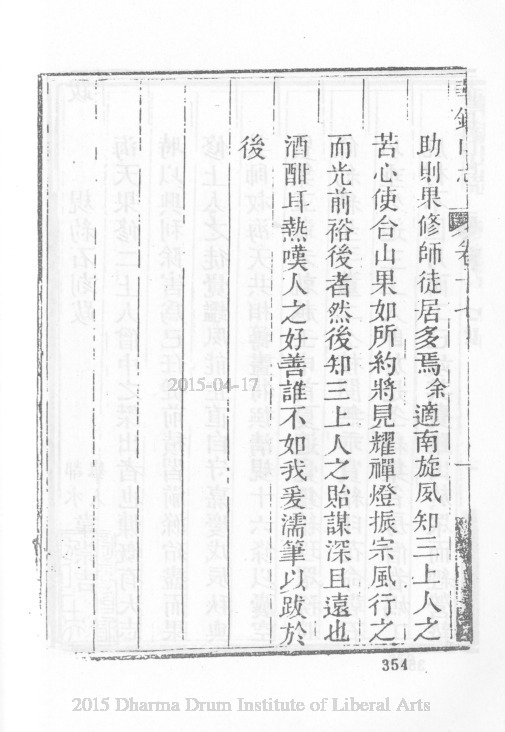 助則果修師徒居多焉余適南旋夙知三上人之
苦心使台山果如所約將見耀禪燈振宗風行之
而光前裕後者然後知三上人之貽謀深且遠也
酒酣耳熱嘆人之好善誰不如我爰濡筆以跋於
後
卷十七
2015-04-17
354
2015 Dharma Drum Institute of Liberal Arts